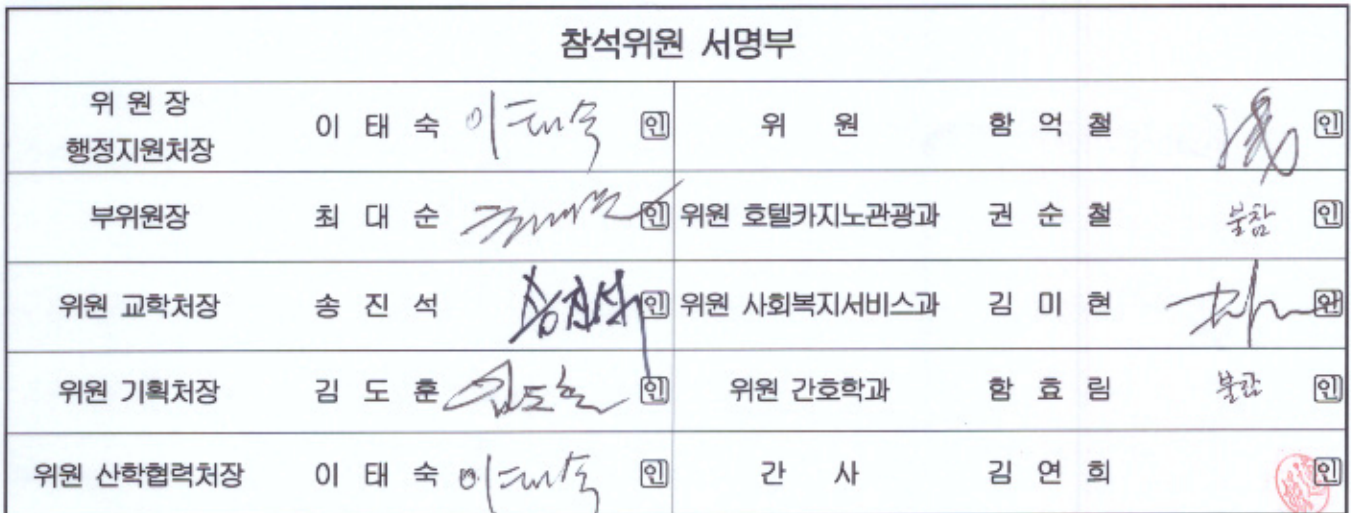 참석위원 서명부
위 원 장
행정지원처장 이 태 숙 이태숙 인 위 원 함 억 철 인
부위원장 최 대 순 인 위원 호텔카지노관광과 권 순 철 불참 인
위원 교학처장 송 진 석 송진석 인 위원 사회복지서비스과 김 미 현 인
위원 기획처장 김 도 훈 김도훈 인 위원 간호학과 함 효 림 불참 인
위원 산학협력처장 이 태 숙 이태숙 인 간 사 김 연 희 인